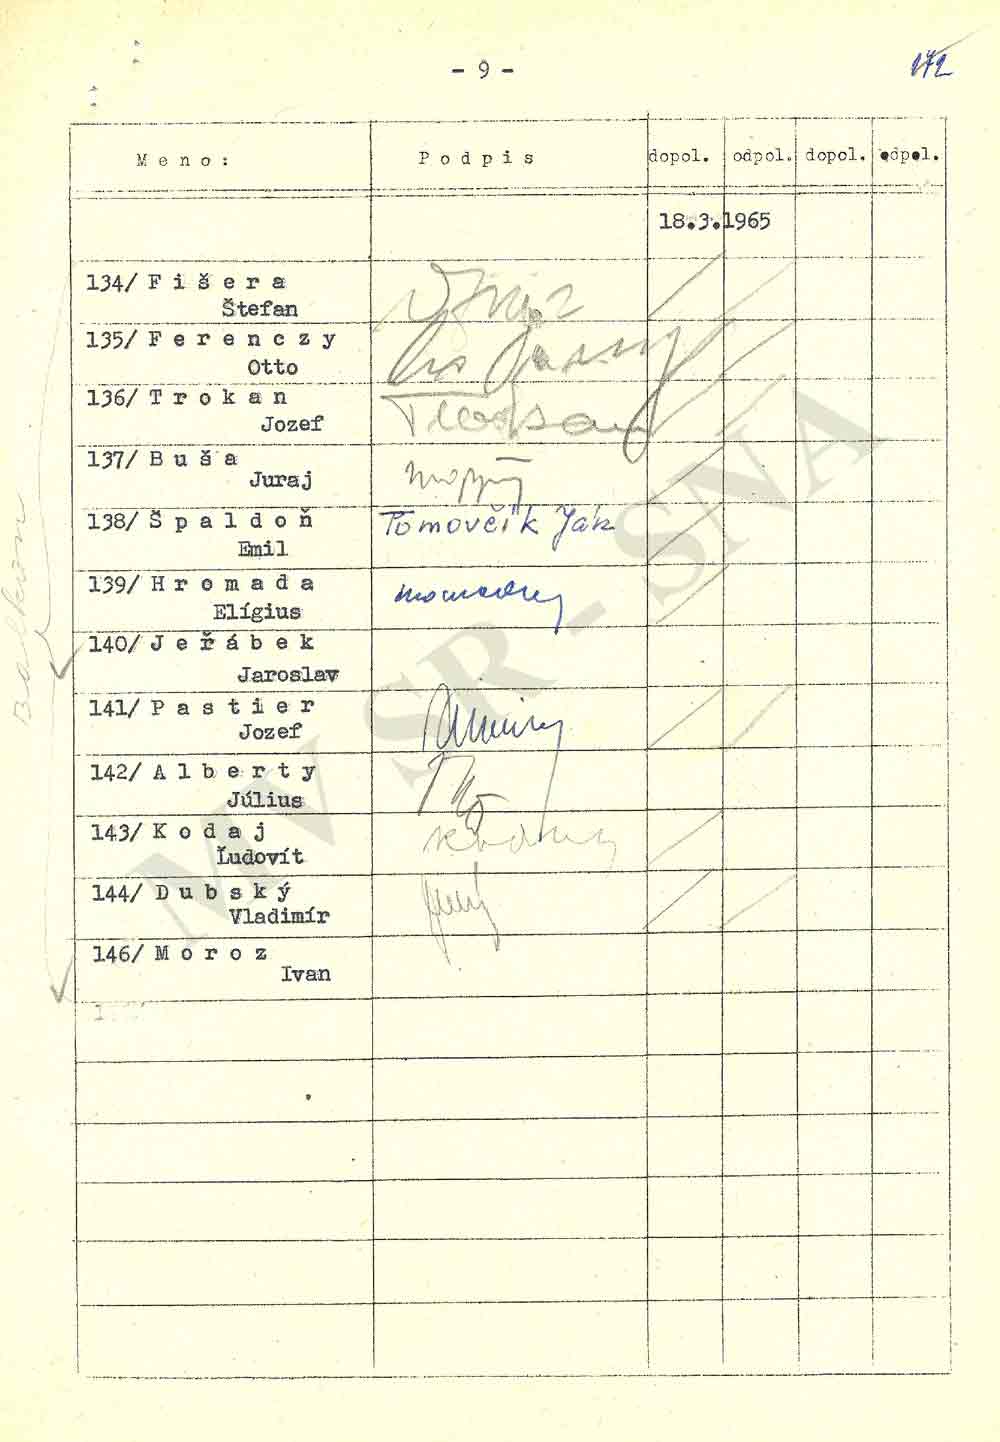 - 9 -
172
Meno: Podpis dopol. odpol. dopol. odpol.
18.3.1965
134/ Fišera
Štefan
135/ Ferenczy
Otto
136/ Trokan
Jozef
137/ Buša
Juraj
138/ Špaldoň Tomovčík Ján
Emil
139/ Hromada
Elígius
140/ Jeřábek
Jaroslav
141/ Pastier
Jozef
142/ Alberty
Július
143/ Kodaj
Ľudovít
144/ Dubský
Vladimír
146/ Moroz
Ivan
Balkón
MV SR - SNA